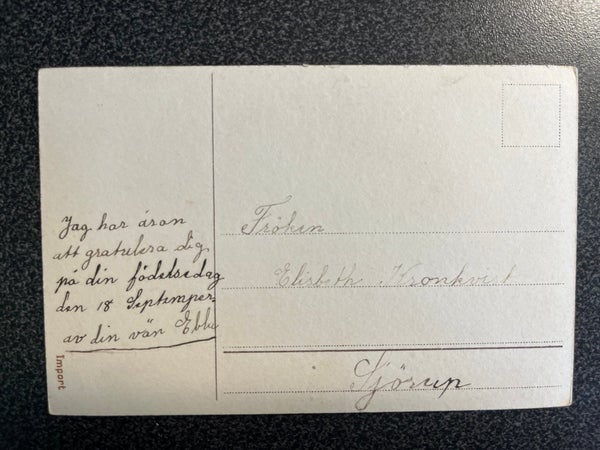 Jag har äran
att gratulera dig
på din födelsedag
den 18 Septemper.
av din vän Ebba
Import
Fröken
Elisbeth Kronkvist
Sjörup